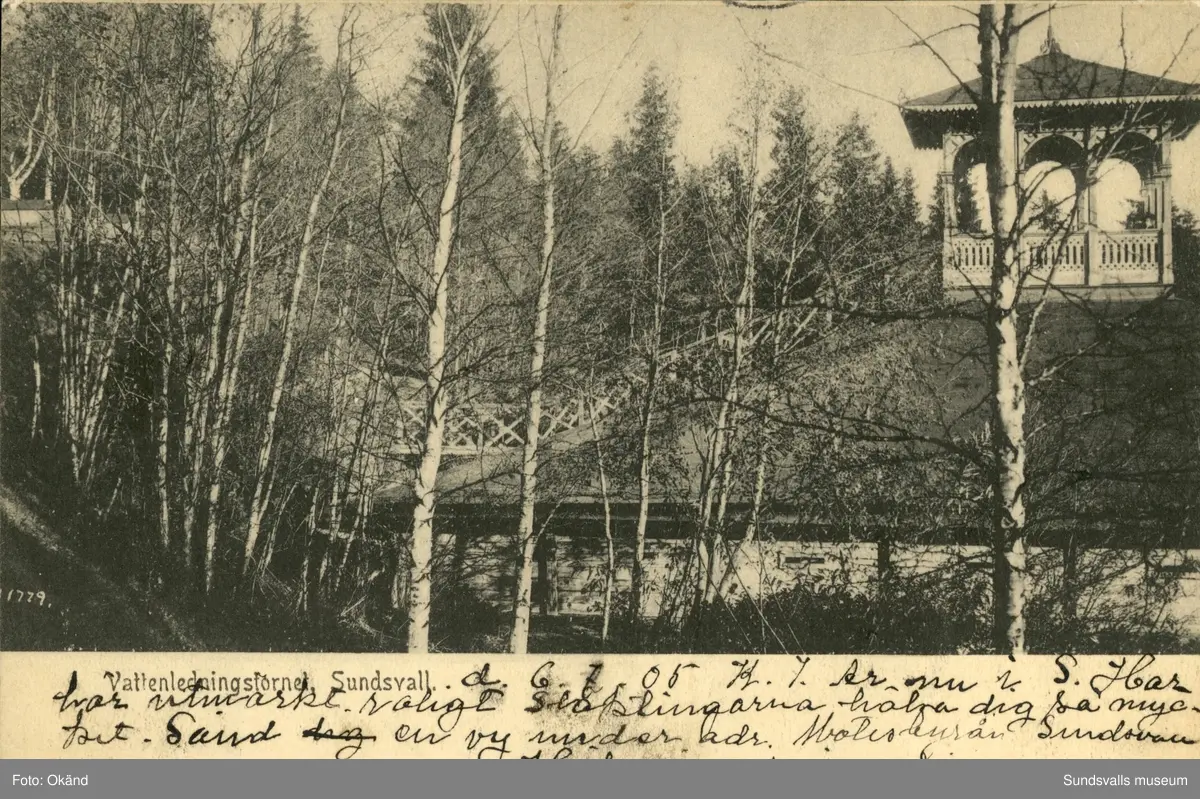 11729.
Vattenledningstornet, Sundsvall.
d. 6. 7. 05 K. J. Är nu i S. Har
har utmärkt roligt Släktingarna hälsa dig så myc-
ket. Sänd en vy under adr. Sundsvall
Foto: Okänd
Sundsvalls museum